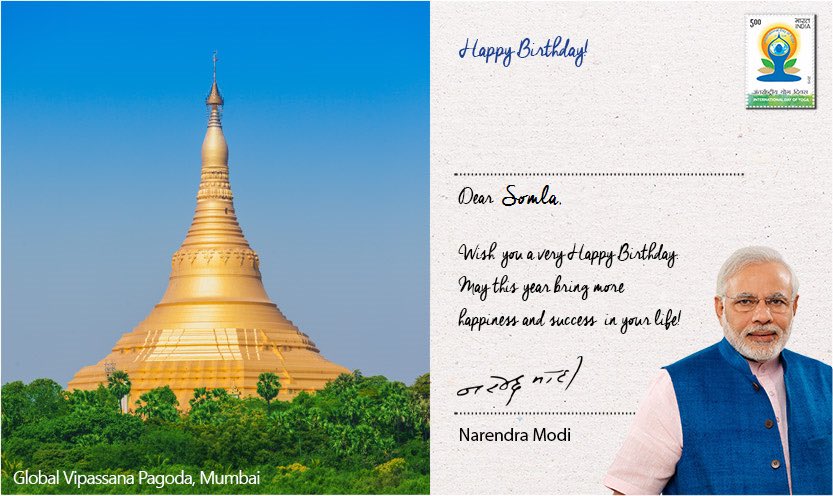 Happy Birthday!
5.00 भारत
INDIA
अन्तर्राष्ट्रीय योग दिवस
INTERNATIONAL DAY OF YOGA
Dear Somla,
Wish you a very Happy Birthday.
May this year bring more
happiness and success in your life!
नरेन्द्र मोदी
Narendra Modi
Global Vipassana Pagoda, Mumbai